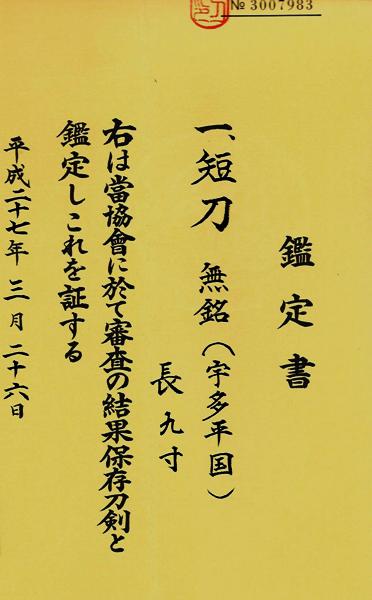 № 3007983
鑑定書
一、短刀 無銘（宇多平国）
長九寸
右は當協會に於て審査の結果保存刀剣と
鑑定しこれを証する
平成二十七年 三月 二十六日